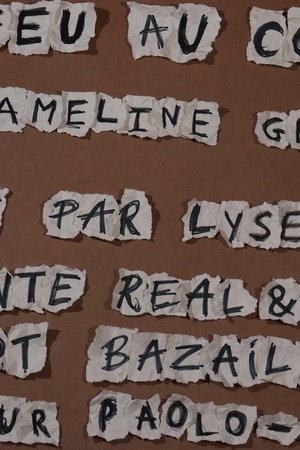 EU AU CO
AMELINE GE
PAR LYSE
NTE REAL &
OT BAZAIL
UR PAOLO-